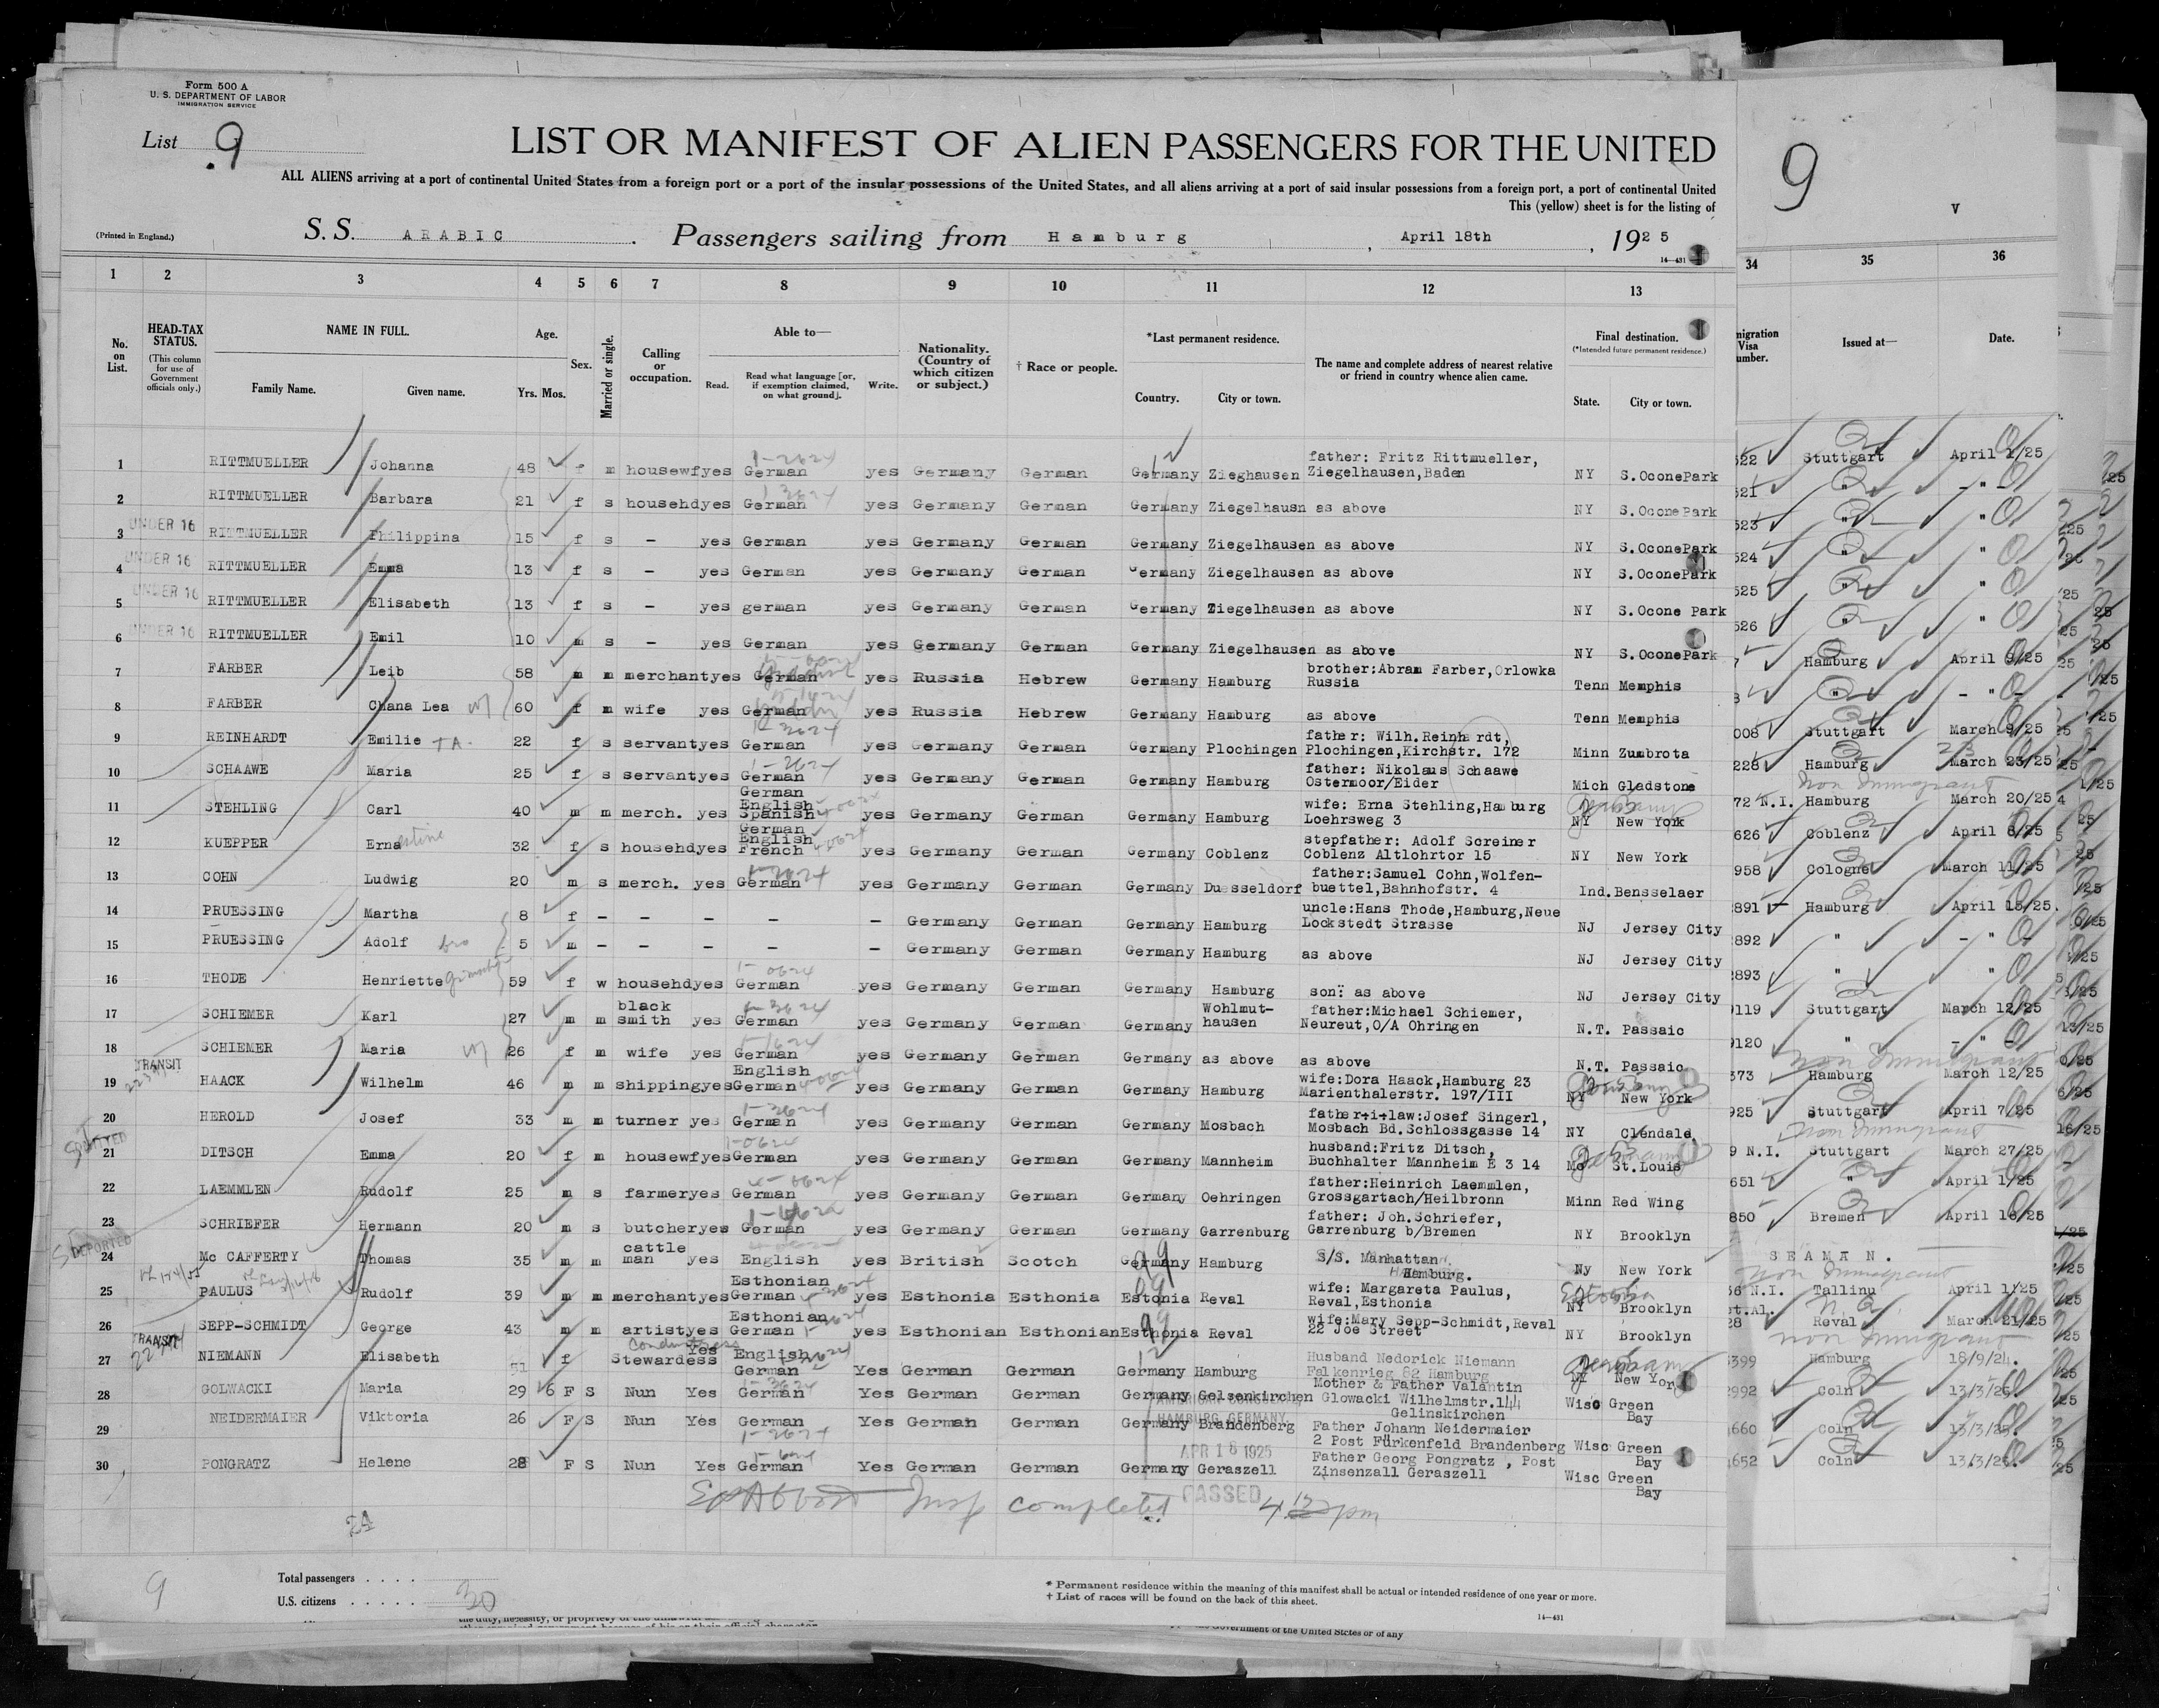 Form 500 A
U. S. DEPARTMENT OF LABOR
IMMIGRATION SERVICE
List 9
LIST OR MANIFEST OF ALIEN PASSENGERS FOR THE UNITED
9
V
ALL ALIENS arriving at a port of continental United States from a foreign port or a port of the insular possessions of the United States, and all aliens arriving at a port of said insular possessions from a foreign port, a port of continental United
This (yellow) sheet is for the listing of
(Printed in England.) S. S. ARABIC . Passengers sailing from Hamburg , April 18th , 1925
14—431
1 2 3 4 5 6 7 8 9 10 11 12 13 34 35 36
No. on List. HEAD-TAX STATUS. (This column for use of Government officials only.) NAME IN FULL. Family Name. Given name. Age. Yrs. Mos. Sex. Married or single. Calling or occupation. Able to— Read. Read what language [or, if exemption claimed, on what ground]. Write. Nationality. (Country of which citizen or subject.) † Race or people. *Last permanent residence. Country. City or town. The name and complete address of nearest relative or friend in country whence alien came. Final destination. (*Intended future permanent residence.) State. City or town. migration Visa umber. Issued at— Date.
1 RITTMUELLER Johanna 48 f m housewf yes German yes Germany German Germany Zieghausen father: Fritz Rittmueller, Ziegelhausen,Baden NY S.OconePark 522 Stuttgart April 1/25
2 RITTMUELLER Barbara 21 f s househd yes German yes Germany German Germany Ziegelhausn as above NY S.OconePark 521 " - " -
3 UNDER 16 RITTMUELLER Philippina 15 f s - yes German yes Germany German Germany Ziegelhausen as above NY S.OconePark 523 " "
4 UNDER 16 RITTMUELLER Emma 13 f s - yes German yes Germany German Germany Ziegelhausen as above NY S.OconePark 524 " "
5 UNDER 16 RITTMUELLER Elisabeth 13 f s - yes german yes Germany German Germany Ziegelhausen as above NY S.Ocone Park 525 " "
6 UNDER 16 RITTMUELLER Emil 10 m s - yes German yes Germany German Germany Ziegelhausen as above NY S.OconePark 526 " "
7 FARBER Leib 58 m m merchant yes German yes Russia Hebrew Germany Hamburg brother:Abram Farber,Orlowka Russia Tenn Memphis 7 Hamburg April 9/25
8 FARBER Chana Lea W 60 f m wife yes German yes Russia Hebrew Germany Hamburg as above Tenn Memphis 8 " - " -
9 REINHARDT Emilie TA. 22 f s servant yes German yes Germany German Germany Plochingen father: Wilh.Reinhardt, Plochingen,Kirchstr. 172 Minn Zumbrota 008 Stuttgart March 9/25
10 SCHAAWE Maria 25 f s servant yes German yes Germany German Germany Hamburg father: Nikolaus Schaawe Ostermoor/Eider Mich Gladstone 228 Hamburg March 23/25
11 STEHLING Carl 40 m m merch. yes German English Spanish yes Germany German Germany Hamburg wife: Erna Stehling,Hamburg Loehrsweg 3 Germany NY New York 72 N.I. Non Immigrant Hamburg March 20/25
12 KUEPPER Ernastine 32 f s househd yes German English French yes Germany German Germany Coblenz stepfather: Adolf Screiner Coblenz Altlohrtor 15 NY New York 626 Coblenz April 6/25
13 COHN Ludwig 20 m s merch. yes German yes Germany German Germany Duesseldorf father:Samuel Cohn,Wolfen-buettel,Bahnhofstr. 4 Ind. Bensselaer 958 Cologne March 11/25
14 PRUESSING Martha 8 f - - - - - Germany German Germany Hamburg uncle:Hans Thode,Hamburg,Neue Lockstedt Strasse NJ Jersey City 2891 Hamburg April 15/25.
15 PRUESSING Adolf bro 5 m - - - - - Germany German Germany Hamburg as above NJ Jersey City 2892 " - " -
16 THODE Henriette 59 f w househd yes German yes Germany German Germany Hamburg son: as above NJ Jersey City 2893 " "
17 SCHIEMER Karl 27 m m black smith yes German yes Germany German Germany Wohlmut-hausen father:Michael Schiemer, Neureut,O/A Ohringen N.T. Passaic 9119 Stuttgart March 12/25
18 SCHIEMER Maria W 26 f m wife yes German yes Germany German Germany as above as above N.T. Passaic 9120 " - " -
19 TRANSIT HAACK Wilhelm 46 m m shipping yes English German yes Germany German Germany Hamburg wife:Dora Haack,Hamburg 23 Marienthalerstr. 197/III Germany NY New York 373 Non Immigrant Hamburg March 12/25
20 HEROLD Josef 33 m m turner yes German yes Germany German Germany Mosbach father+i+law:Josef Singerl, Mosbach Bd.Schlossgasse 14 NY Clendale, 925 Stuttgart April 7/25
21 DITSCH Emma 20 f m housewf yes German yes Germany German Germany Mannheim husband:Fritz Ditsch, Buchhalter Mannheim E 3 14 Germany Mo St.Louis 9 N.I. Non Immigrant Stuttgart March 27/25
22 LAEMMLEN Rudolf 25 m s farmer yes German yes Germany German Germany Oehringen father:Heinrich Laemmlen, Grossgartach/Heilbronn Minn Red Wing 651 " April 1/25
23 SCHRIEFER Hermann 20 m s butcher yes German yes Germany German Germany Garrenburg father: Joh.Schriefer, Garrenburg b/Bremen NY Brooklyn 850 Bremen April 16/25
24 DEPORTED Mc CAFFERTY Thomas 35 m m cattle man yes English yes British Scotch Germany Hamburg S/S. Manhattan Hamburg. Ny New York SEAMAN.
25 PAULUS Rudolf 39 m m merchant yes Esthonian German yes Esthonia Esthonia Estonia Reval wife: Margareta Paulus, Reval,Esthonia Estonia NY Brooklyn 56 N.I. Non Immigrant Tallinu April 1/25
26 SEPP-SCHMIDT George 43 m m artist yes Esthonian German yes Esthonian Esthonian Esthonia Reval wife:Mary Sepp-Schmidt,Reval 22 Joe Street NY Brooklyn 28 Reval March 21/25
27 TRANSIT NIEMANN Elisabeth 51 f Conductress Stewardess Yes English German Yes German German Germany Hamburg Husband Nedorick Niemann Falkenrieg 82 Hamburg Germany NY New York 3399 Non Immigrant Hamburg 18/9/24.
28 GOLWACKI Maria 29 6 F S Nun Yes German Yes German German Germany Gelsenkirchen Mother & Father Valantin Glowacki Wilhelmstr.144 Gelinskirchen Wisc Green Bay 2992 Coln 13/3/25.
29 NEIDERMAIER Viktoria 26 F S Nun Yes German Yes German German Germany Brandenberg Father Johann Neidermaier 2 Post Fürkenfeld Brandenberg Wisc Green Bay 660 Coln 13/3/25.
30 PONGRATZ Helene 28 F S Nun Yes German Yes German German Germany Geraszell Father Georg Pongratz , Post Zinsenzall Geraszell Wisc Green Bay 652 Coln 13/3/25.
HAMBURG GERMANY
APR 18 1925
PASSED
Insp completed 4 pm
9
Total passengers . . . .
U.S. citizens . . . . . 30
* Permanent residence within the meaning of this manifest shall be actual or intended residence of one year or more.
† List of races will be found on the back of this sheet.
14—431